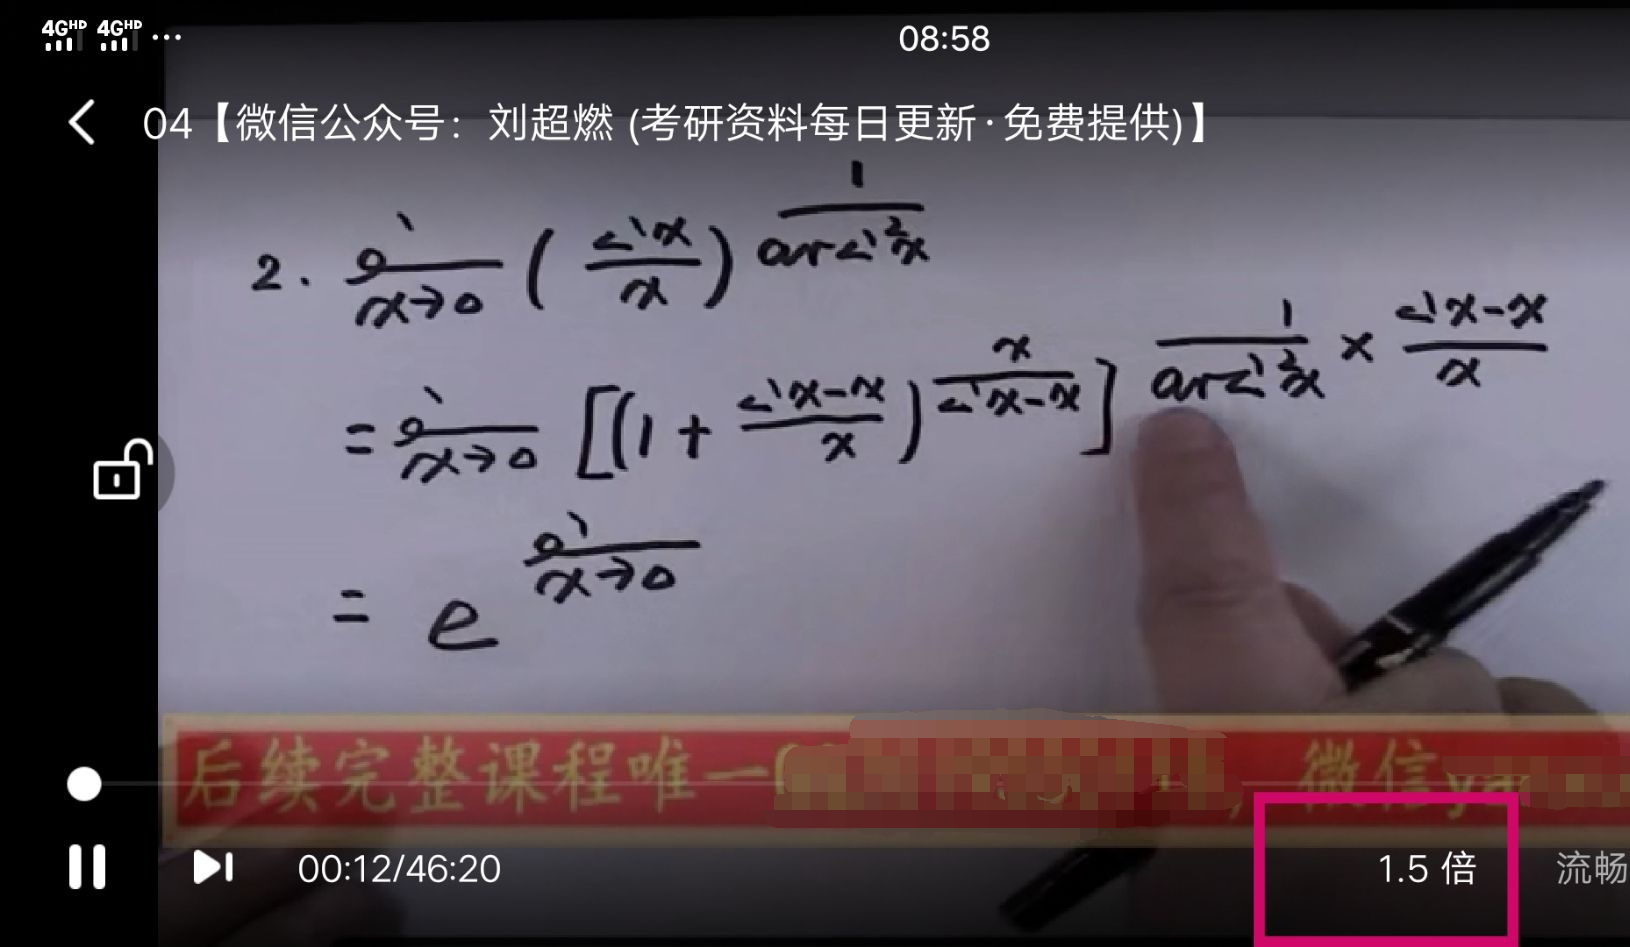 4GHD 4GHD ...
08:58
04【微信公众号：刘超燃 (考研资料每日更新·免费提供)】
2. lim x→0 (sin x / x)^(1 / arcsin²x)
= lim x→0 [(1 + (sin x - x) / x)^(x / (sin x - x))]^(1 / arcsin²x × (sin x - x) / x)
= e^(lim x→0)
后续完整课程唯一
微信
00:12/46:20
1.5 倍
流畅